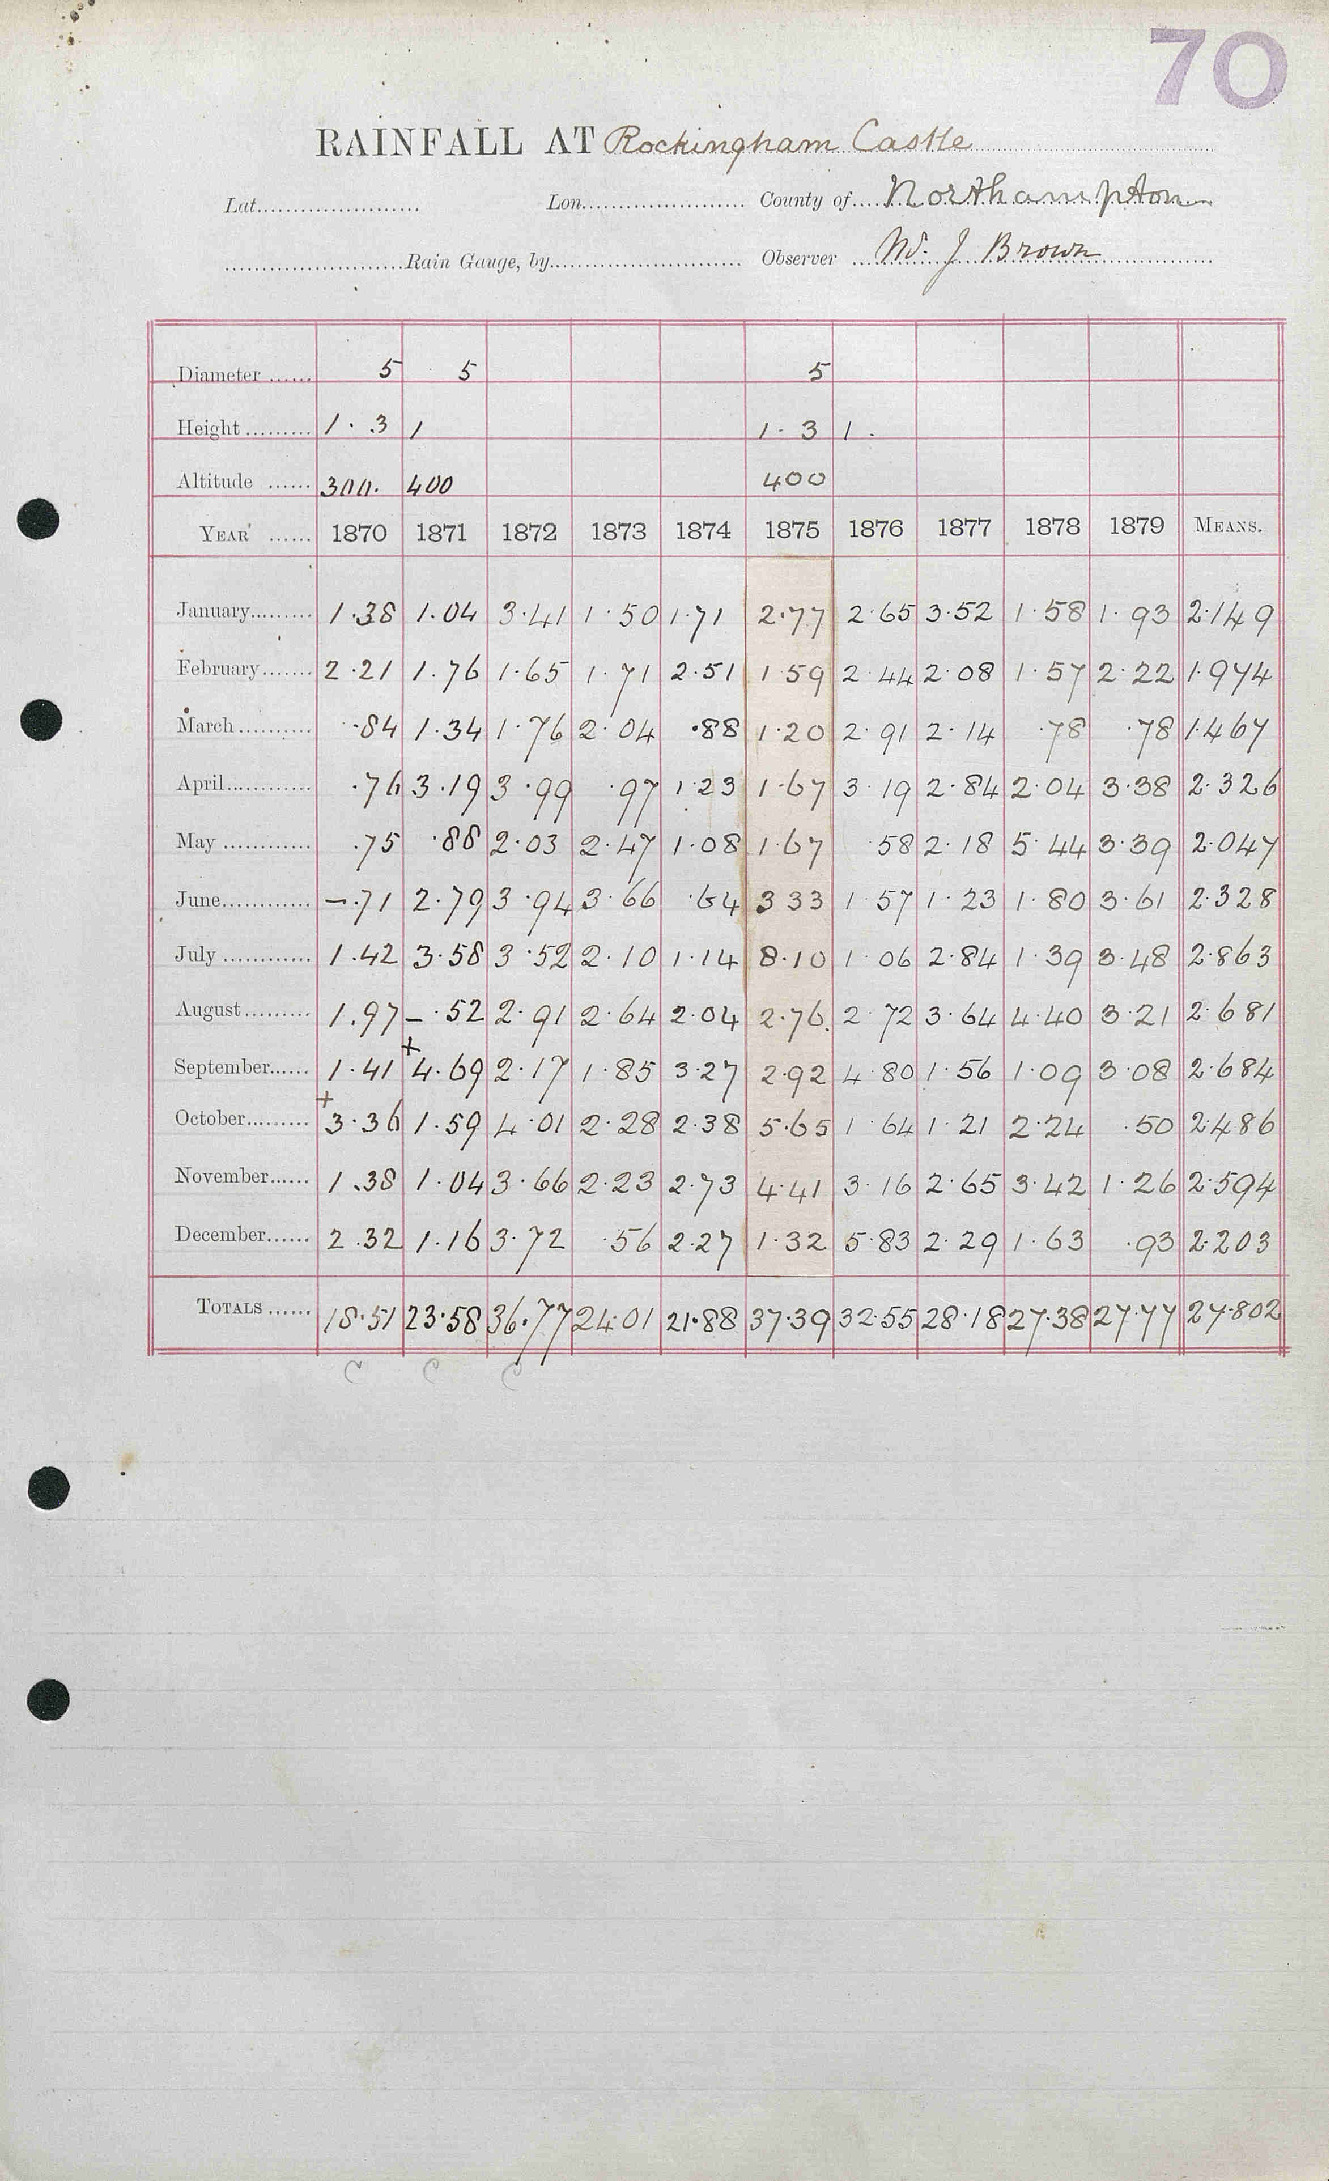 70
RAINFALL AT Rockingham Castle
Lat. Lon. County of Northampton
Rain Gauge, by Observer W. J Brown
Diameter 5 5 5
Height 1 · 3 1 1 · 3 1 ·
Altitude 300. 400 400
YEAR 1870 1871 1872 1873 1874 1875 1876 1877 1878 1879 MEANS.
January 1.38 1.04 3.41 1.50 1.71 2.77 2.65 3.52 1.58 1.93 2.149
February 2.21 1.76 1.65 1.71 2.51 1.59 2.44 2.08 1.57 2.22 1.974
March .84 1.34 1.76 2.04 .88 1.20 2.91 2.14 .78 .78 1.467
April .76 3.19 3.99 .97 1.23 1.67 3.19 2.84 2.04 3.38 2.326
May .75 .88 2.03 2.47 1.08 1.67 .58 2.18 5.44 3.39 2.047
June -.71 2.79 3.94 3.66 .64 3 33 1.57 1.23 1.80 3.61 2.328
July 1.42 3.58 3.52 2.10 1.14 8.10 1.06 2.84 1.39 3.48 2.863
August 1.97 - .52 2.91 2.64 2.04 2.76. 2.72 3.64 4.40 3.21 2.681
September 1.41 +4.69 2.17 1.85 3.27 2.92 4.80 1.56 1.09 3.08 2.684
October +3.36 1.59 4.01 2.28 2.38 5.65 1.64 1.21 2.24 .50 2.486
November 1.38 1.04 3.66 2.23 2.73 4.41 3.16 2.65 3.42 1.26 2.594
December 2.32 1.16 3.72 .56 2.27 1.32 5.83 2.29 1.63 .93 2.203
TOTALS 18.51 23.58 36.77 24.01 21.88 37.39 32.55 28.18 27.38 27.77 27.802
C C C